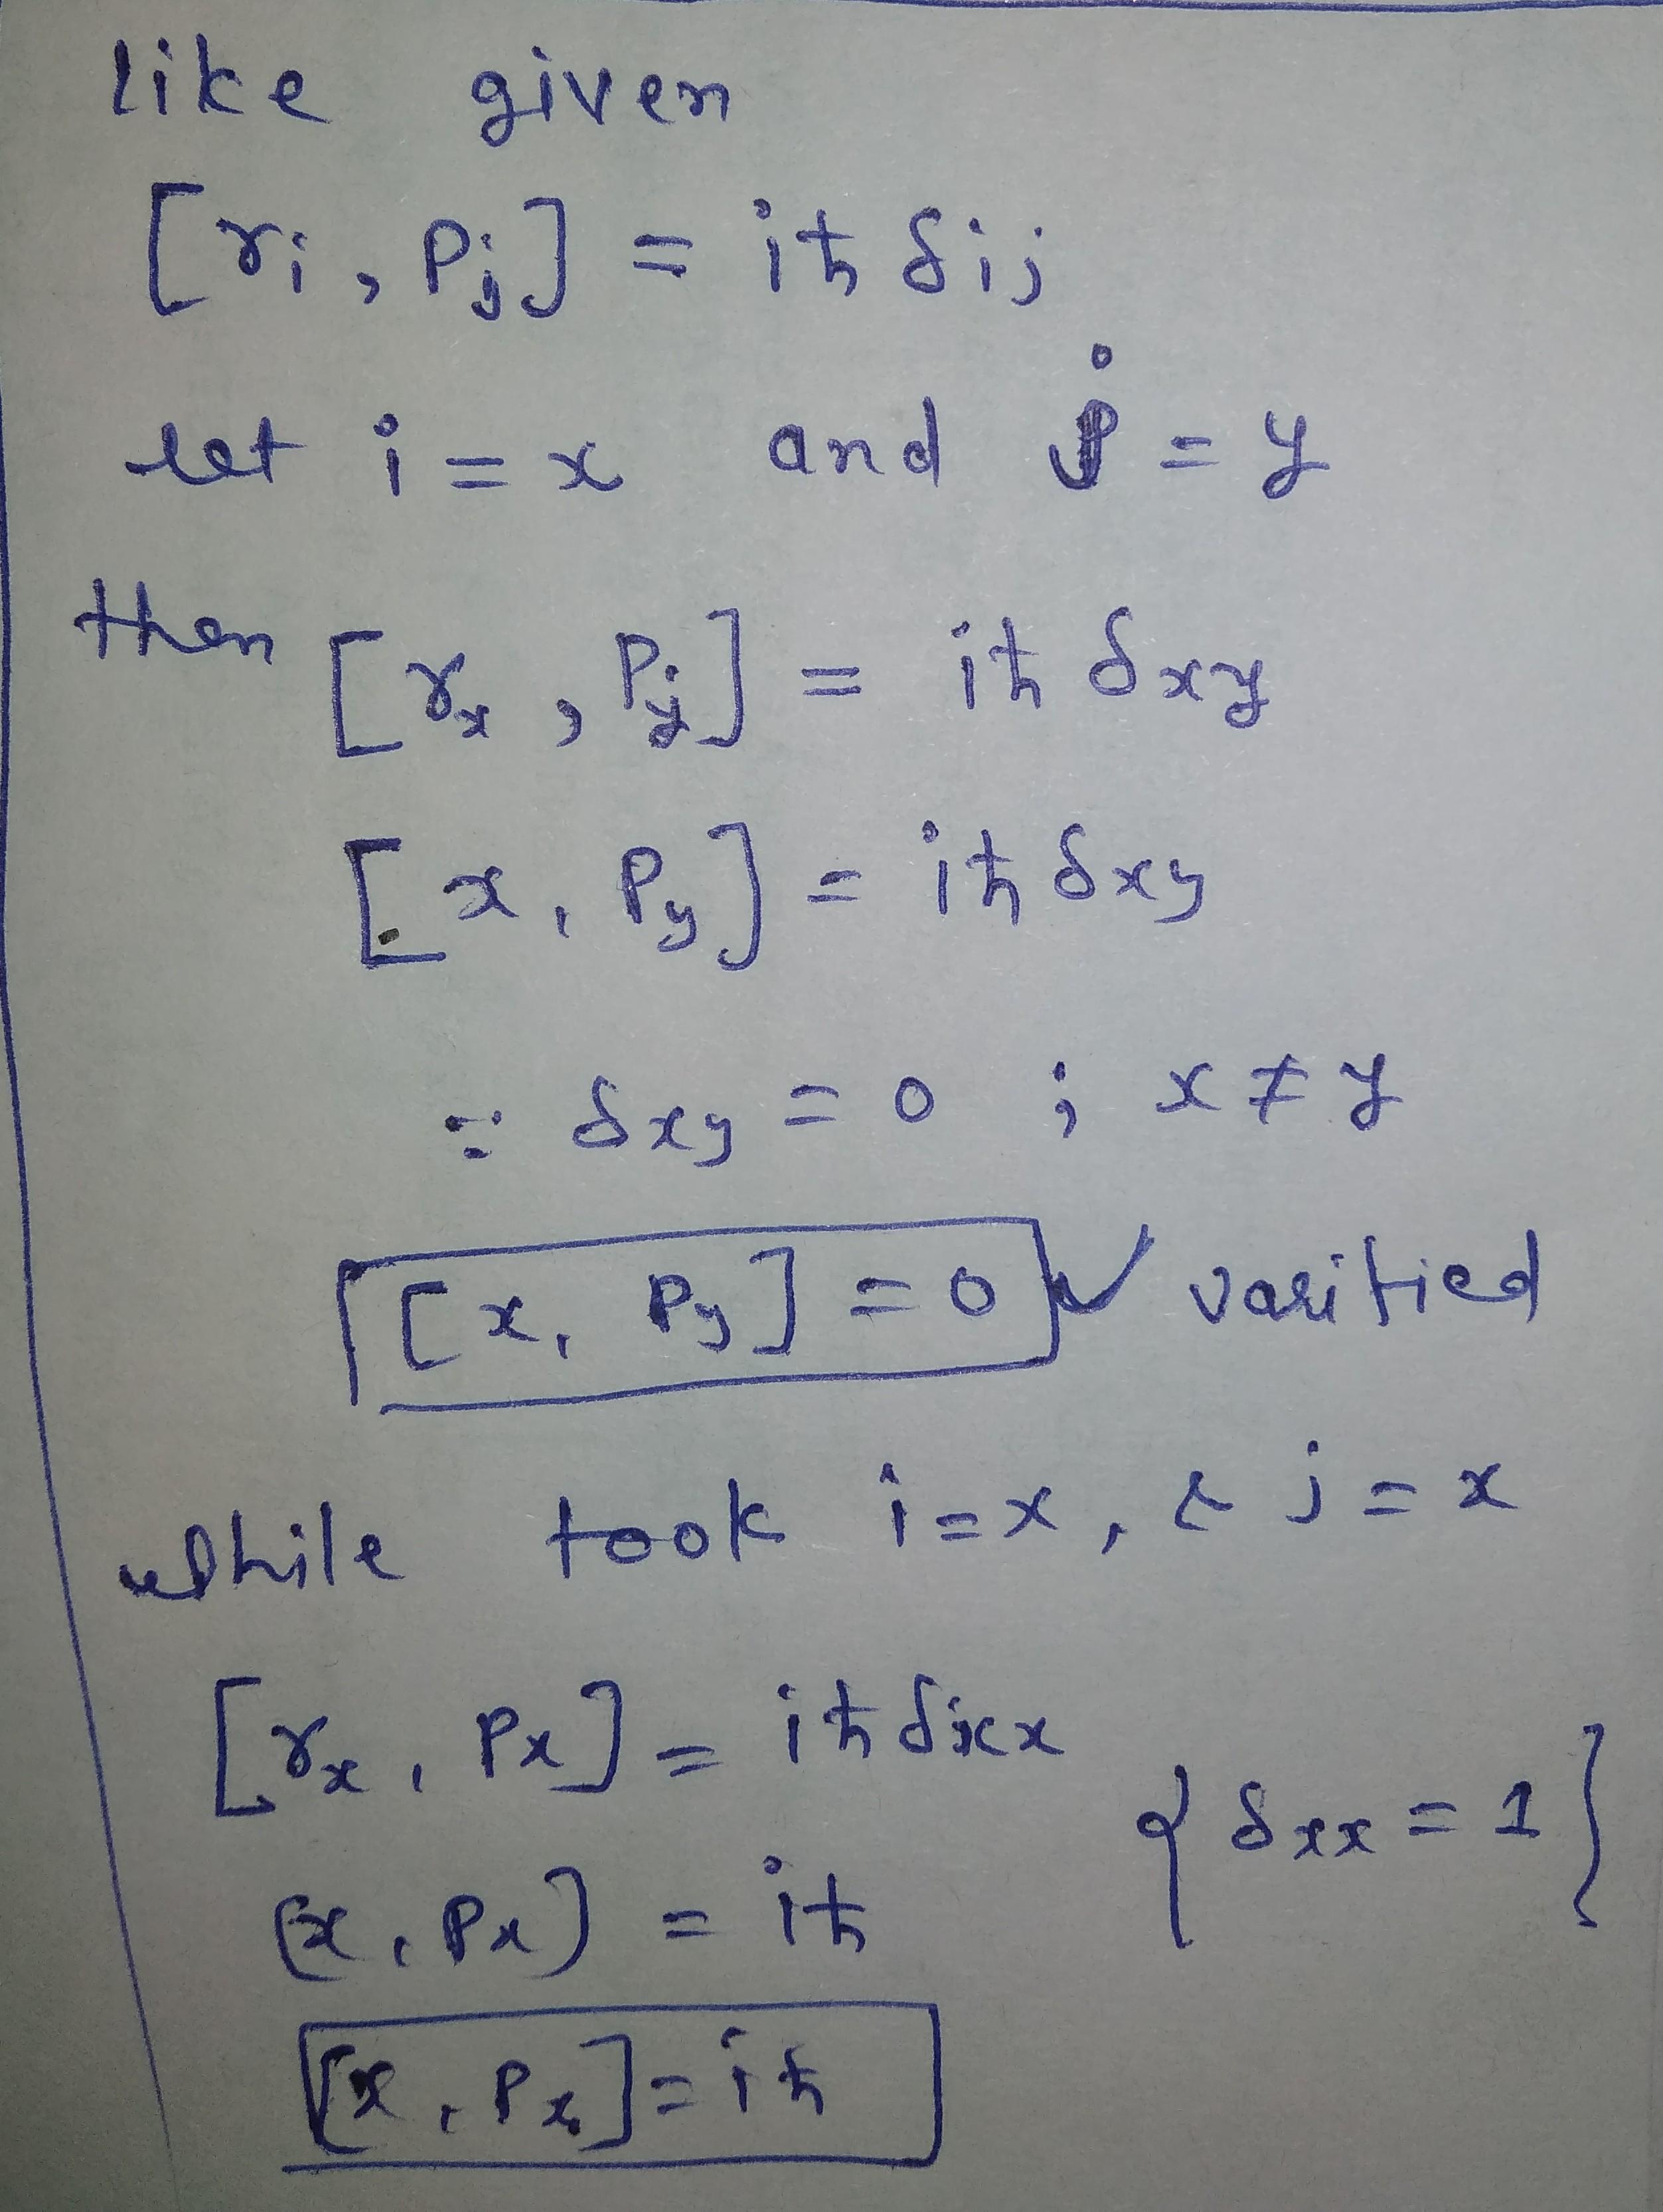 like given
[ri, Pj] = iħ δij
let i = x and j = y
then [rx, Py] = iħ δxy
[x, Py] = iħ δxy
∵ δxy = 0 ; x ≠ y
[x, Py] = 0 ✓ varified
while took i=x, & j = x
[rx, Px] = iħ δxx
{δxx = 1}
[x, Px] = iħ
[x, Px] = iħ